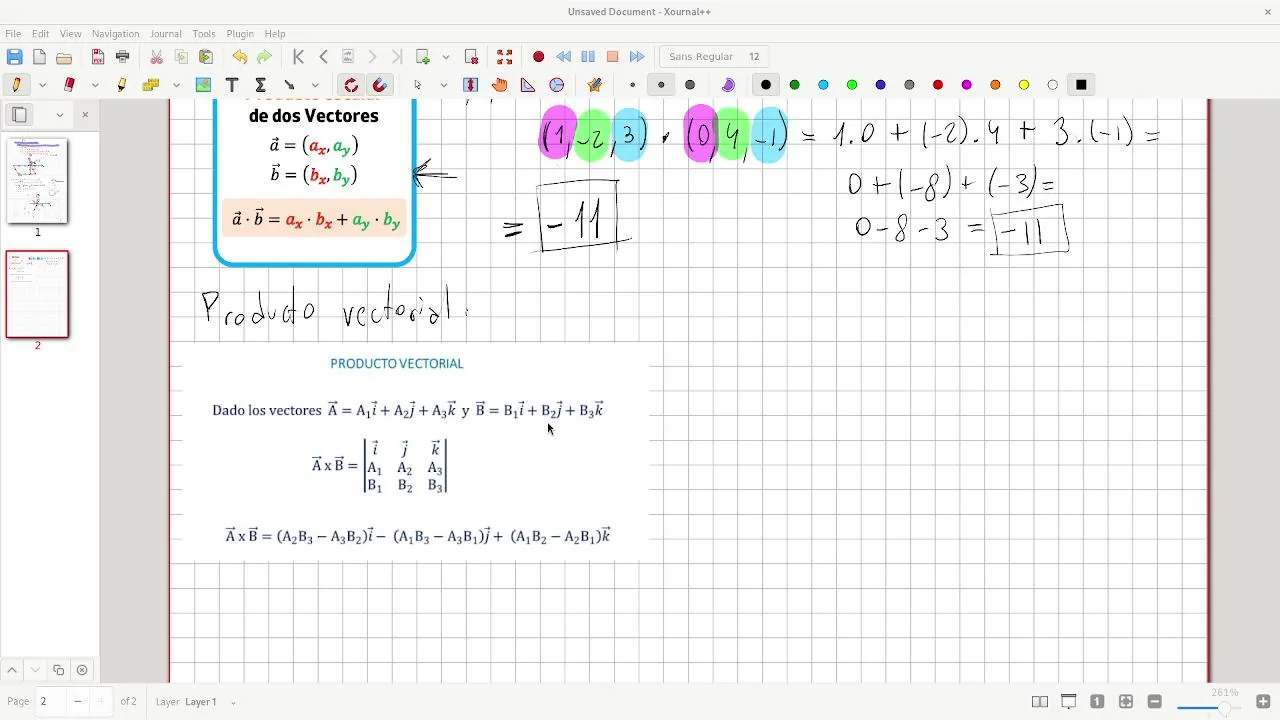 Unsaved Document - Xournal++
File Edit View Navigation Journal Tools Plugin Help
Sans Regular 12
de dos Vectores
a⃗ = (aₓ, a_y)
b⃗ = (bₓ, b_y)
a⃗ · b⃗ = aₓ · bₓ + a_y · b_y
(1, -2, 3) · (0, 4, -1) = 1.0 + (-2).4 + 3.(-1) =
0 + (-8) + (-3) =
0 - 8 - 3 = -11
= -11
Producto vectorial:
PRODUCTO VECTORIAL
Dado los vectores A⃗ = A₁i⃗ + A₂j⃗ + A₃k⃗ y B⃗ = B₁i⃗ + B₂j⃗ + B₃k⃗
i⃗ j⃗ k⃗
A⃗ x B⃗ = A₁ A₂ A₃
B₁ B₂ B₃
A⃗ x B⃗ = (A₂B₃ − A₃B₂)i⃗ − (A₁B₃ − A₃B₁)j⃗ + (A₁B₂ − A₂B₁)k⃗
1
2
Page 2 of 2 Layer Layer 1
261%